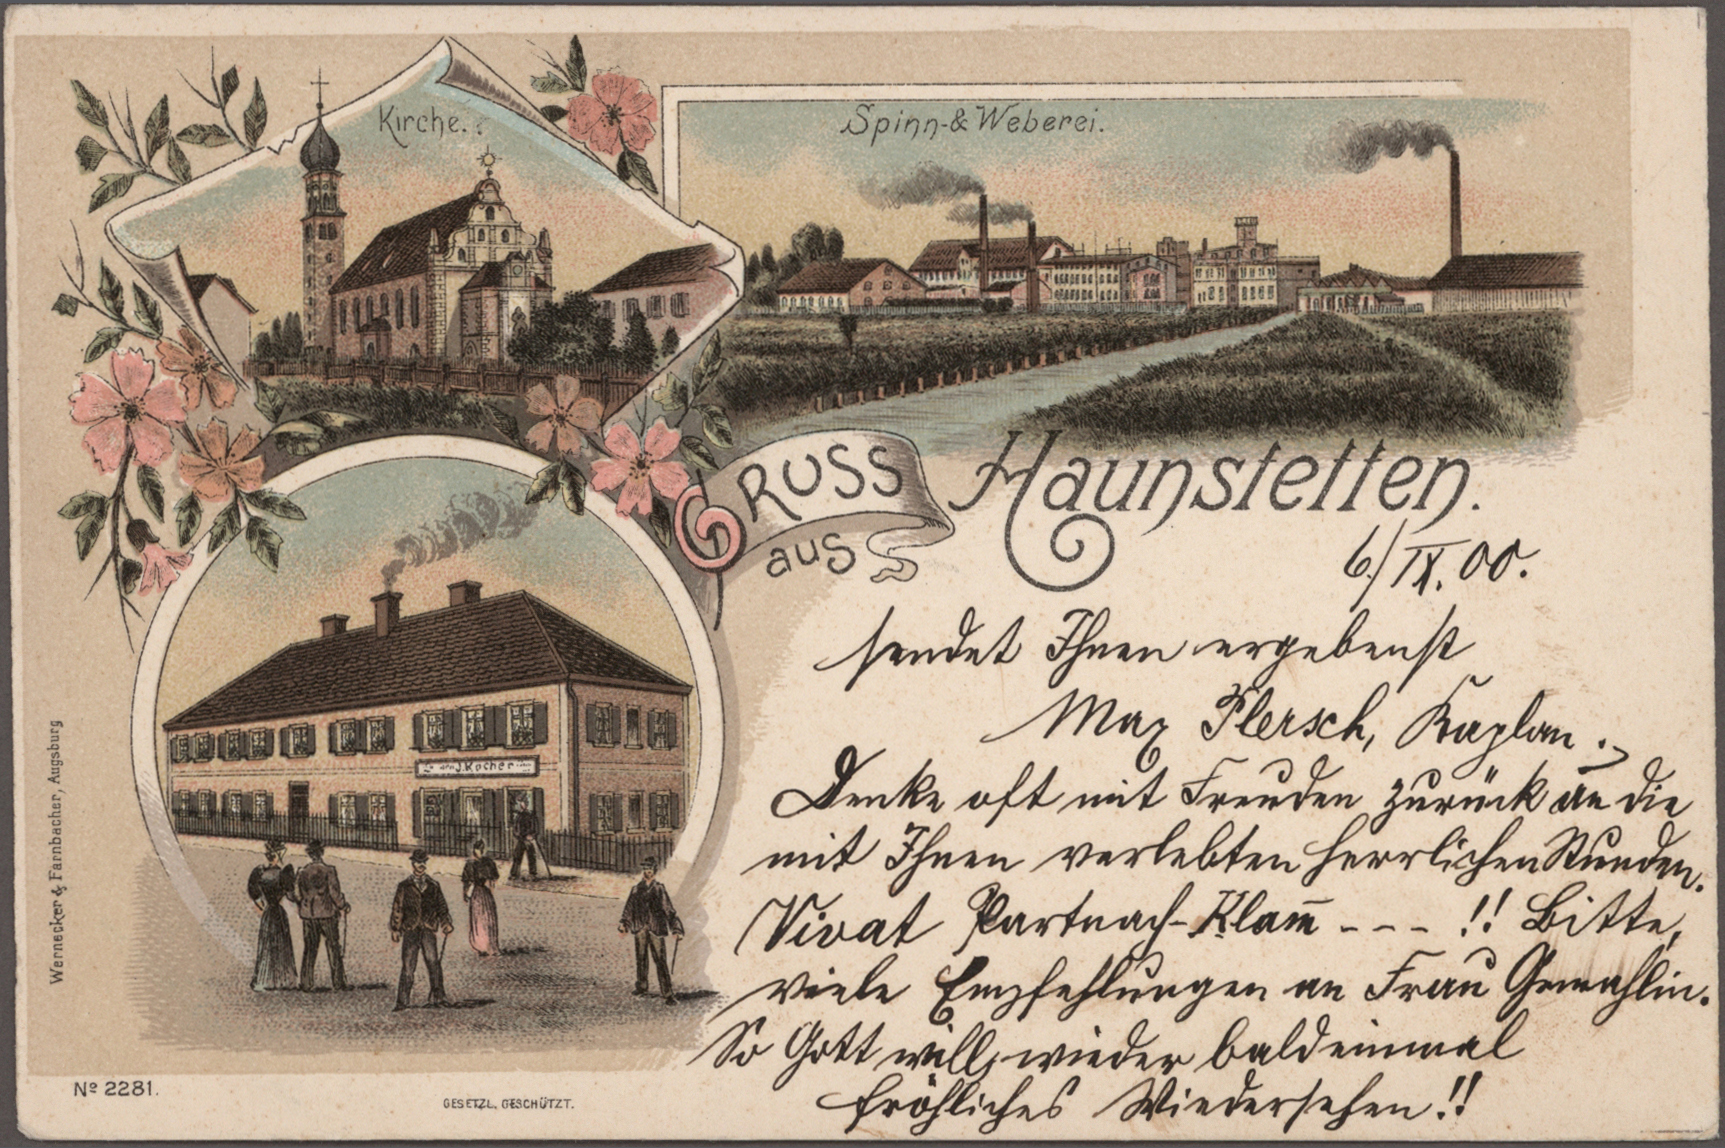 Kirche.
Spinn-& Weberei.
Gruss
aus
Haunstetten.
6./IX. 00.
sendet Ihnen ergebenst
Max Plersch, Kaplan.
Denke oft mit Freuden zurück an die
mit Ihnen verlebten herrlichen Stunden.
Vivat Partnach-Klam̄ - - - !! Bitte,
viele Empfehlungen an Frau Gemahlin.
So Gott will, wieder bald einmal
fröhliches Wiedersehen!!
J. Kocher
Wernecker & Farnbacher, Augsburg
Nº 2281.
GESETZL. GESCHÜTZT.